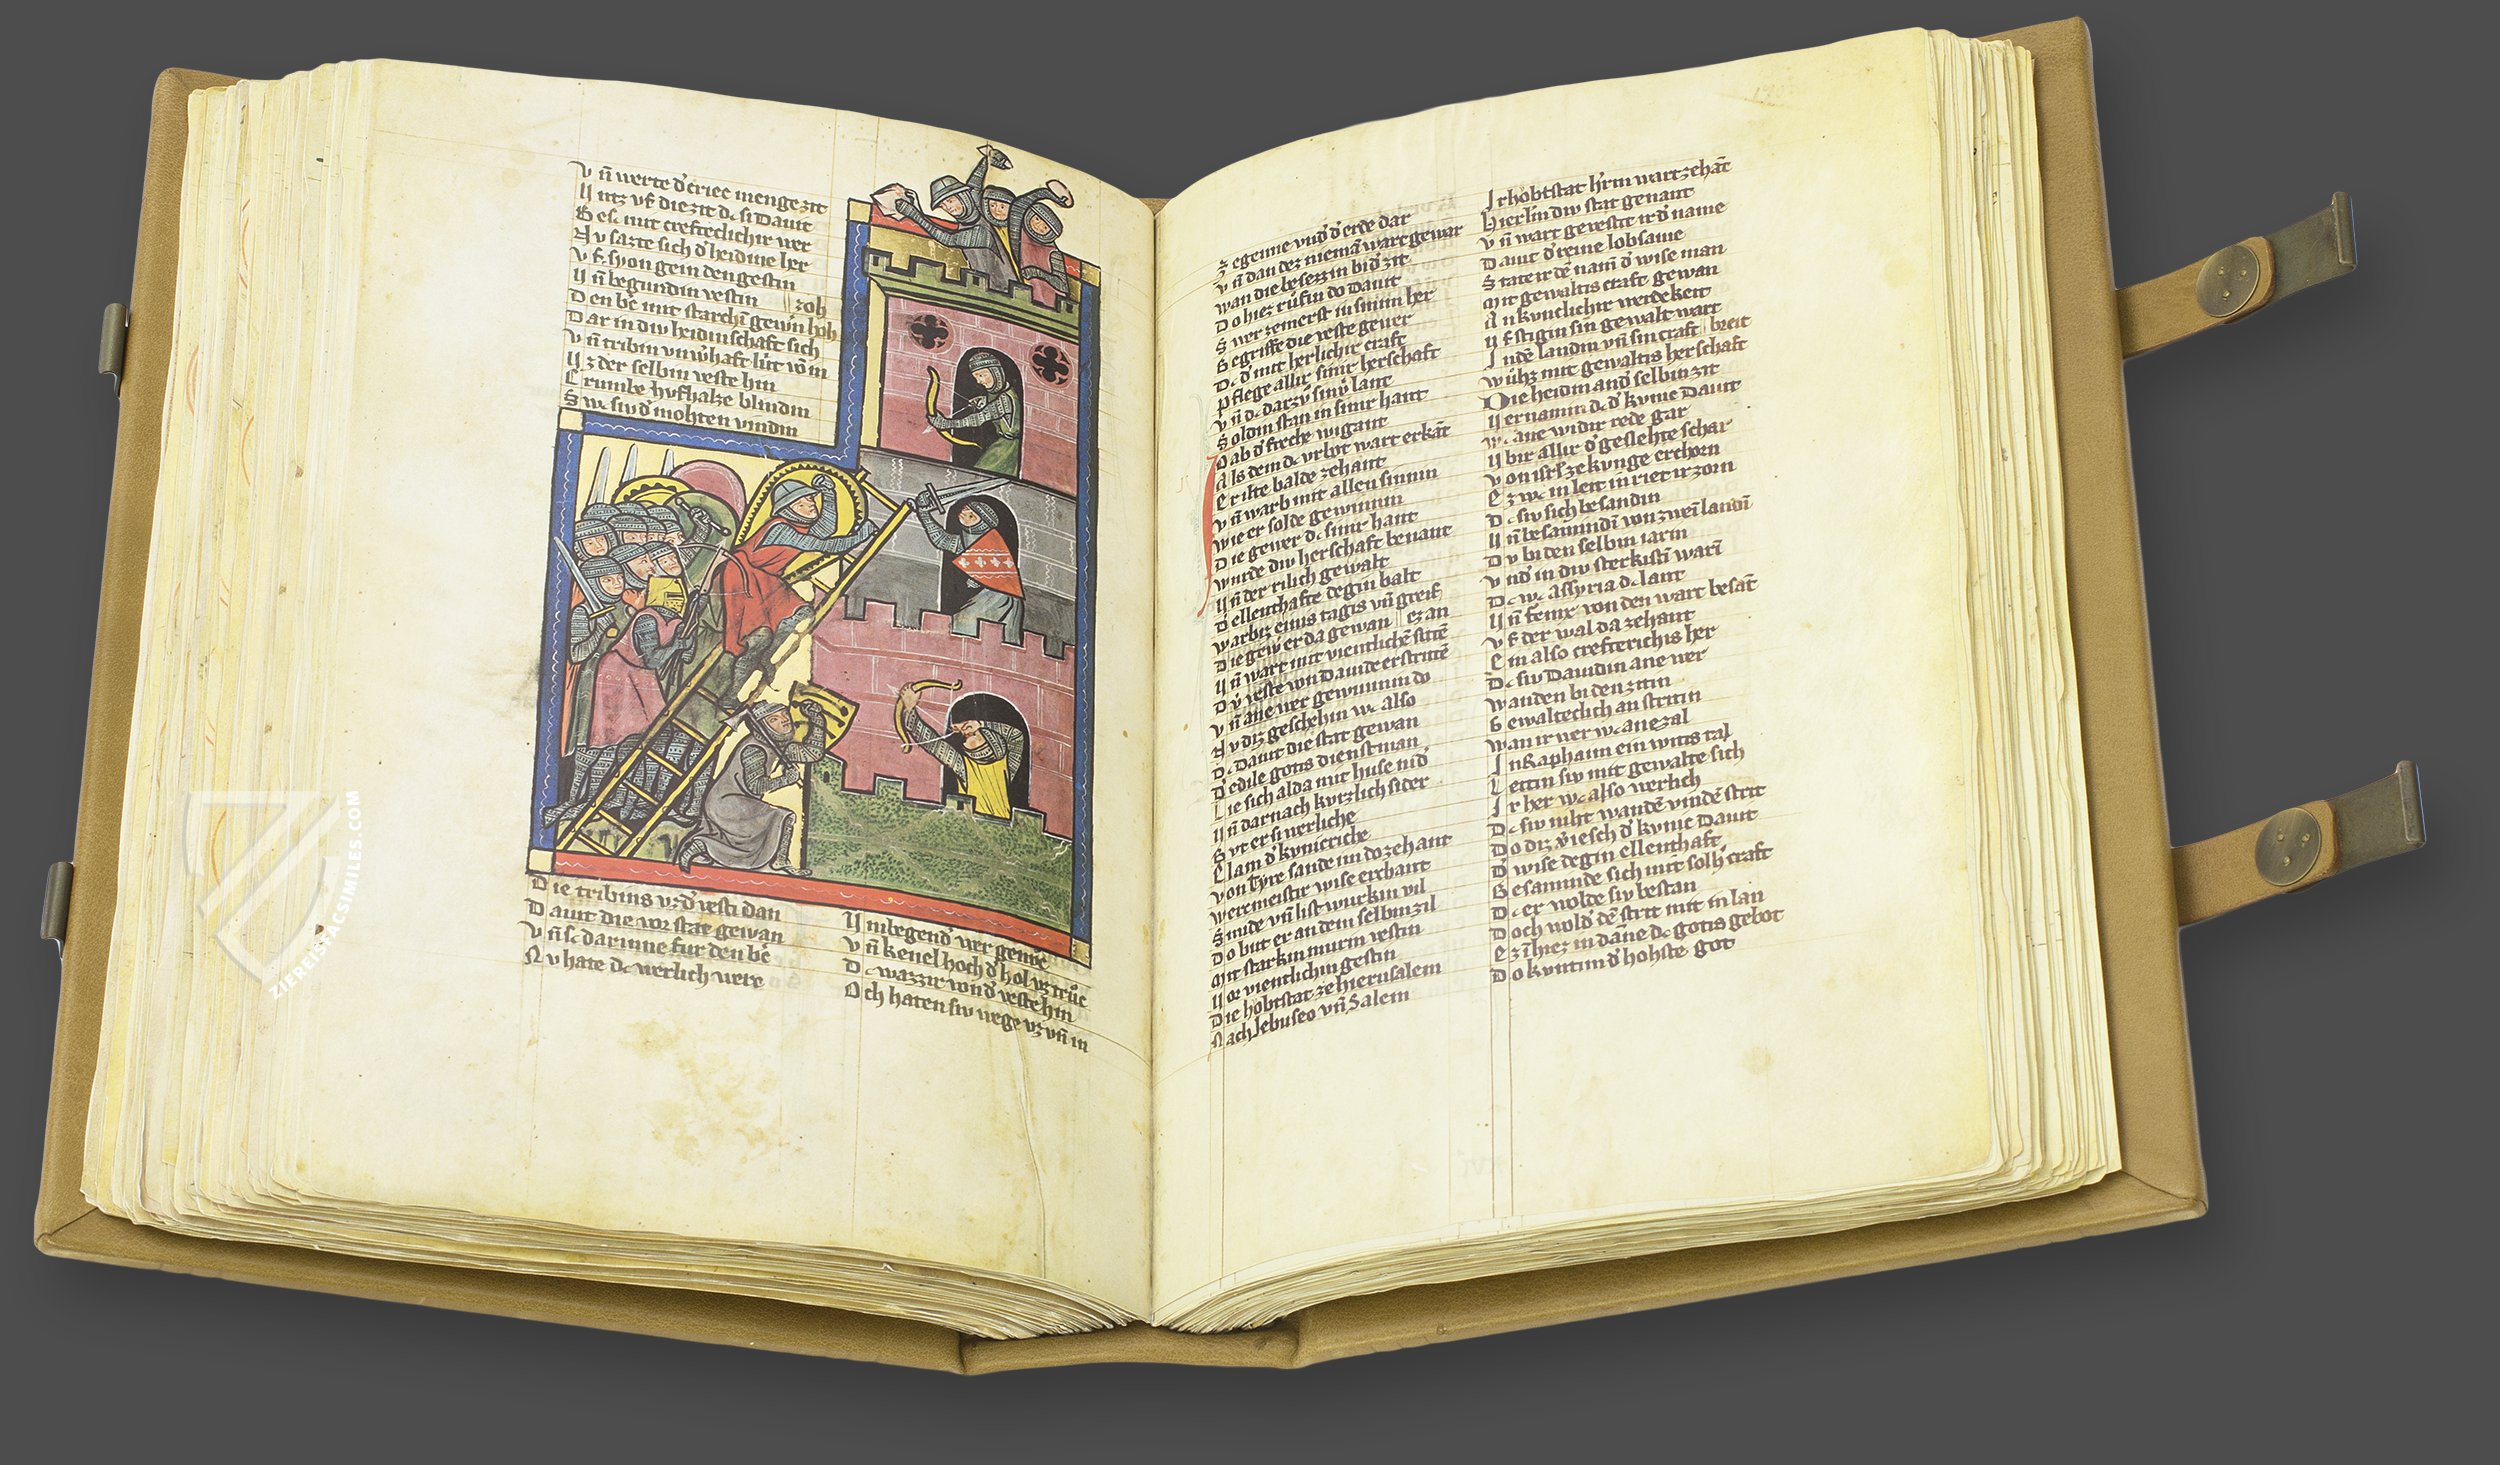 Vñ werte d'criec menge zit
Untz vf die zit dc si Dauit
Besc mit crefteclichir wer
Nv sazte sich d'heidine her
Vf syon gein den gestin
Vñ begundin vestin zoh
Den bc mit starchī gewīn hoh
Dar in div heidinschaft sich
Vñ tribin
Vz der selbin veste hin
Crumbe hvfhalze blindin
Swc siv d' mohten vindin
Die tribins vz d' vesti dan
Dauit die vor stat gewan
Vñ sc darinne fur den bc
Nv hate dc werlich were
Umbegend' wer genvc
Vñ kenel hoch d' hol vz trvc
Dc wazzir von d' veste hin
Och haten siv wege vz vñ in
Ze geinne vnd' d'erde dar
Vñ dan dez niemā wart gewar
Wan die besezzin bi d' zit
Do hiez rvfin do Dauit
Swer zemerst in sinim her
Begriffe die veste gewer
Dc d' mit herlichir craft
Pflege allir sinir herschaft
Vñ dc darzv sinv lant
Soldin stan in sinir hant
Joab d' freche wigant
Als dem dc vrlvp wart erkāt
Er ilte balde zehant
Vñ warb mit allen sinnin
Wie er solde gewinnin
Die gewer dc sinir hant
Wurde div herschaft benant
Vñ der rilich gewalt
D' ellenthafte degin balt
Warb iz einis tagis vñ greif ez an
Die gewer da gewan
Vñ wart mit vientlichē sitē
Dv veste von Dauide erstritē
Vñ ane wer gewunnin do
Nv diz geschehin wc also
Dc Dauit die stat gewan
D' edile gotis dienstman
Lie sich alda mit huse nid'
Vñ darnach kvrzlich sider
Bvt er si werliche
Elam d' kvnic riche
Von Tyre sande im do zehant
Wercmeistir wise erchant
Smide vñ list wurkin vil
Do bvt er an dem selbin zil
Mit starkin murin vestin
Vor vientlichin gestin
Die hobtstat ze hierusalem
Nach Jebuseo vñ Salem
Ir hobtstat h'rin wart zehāt
Hierlin div stat genant
Vñ wart gevestit ir d' name
Dauit d' reine lobsame
Stateir dē namī d' wise man
Mit gewaltis craft gewan
An kvnclichir werdekeit
Vf stigin sin gewalt wart breit
In dē landin vñ sin craft
Wuhz mit gewaltis herschaft
Die heidin an d' selbin zit
Vernamin dc d' kvnic Dauit
Wc ane widir rede gar
Ubir allir d' geslehte schar
Von isrl' ze kvnge erchorn
Ez wc in leit in riet ir zorn
Dc siv sich besandin
Vñ besamindī von zwein landī
Dv bi den selbin iarin
Vnd' in div sterkistī warī
Dc wc Assyria dc lant
Vñ fenix von den wart besāt
Vf der wal da zehant
Ein also crefterichis her
Dc siv Dauidin ane wer
Wanden bi den zitin
Gewalteclich an stritin
Wan ir wer wc ane zal
In Raphaim ein witis tal
Leitin siv mit gewalte sich
Ir her wc also werlich
Dc siv niht wandē vindē strit
Do diz v'iesch d' kvnic Dauit
D' wise degin ellenthaft
Besamnde sich mit solh' craft
Dc er wolde siv bestan
Doch wold' dē strit mit in lan
Ez ī hiez in dāne dc gotis gebot
Do kvntim d' hohste got
ZIEREISFACSIMILES.COM